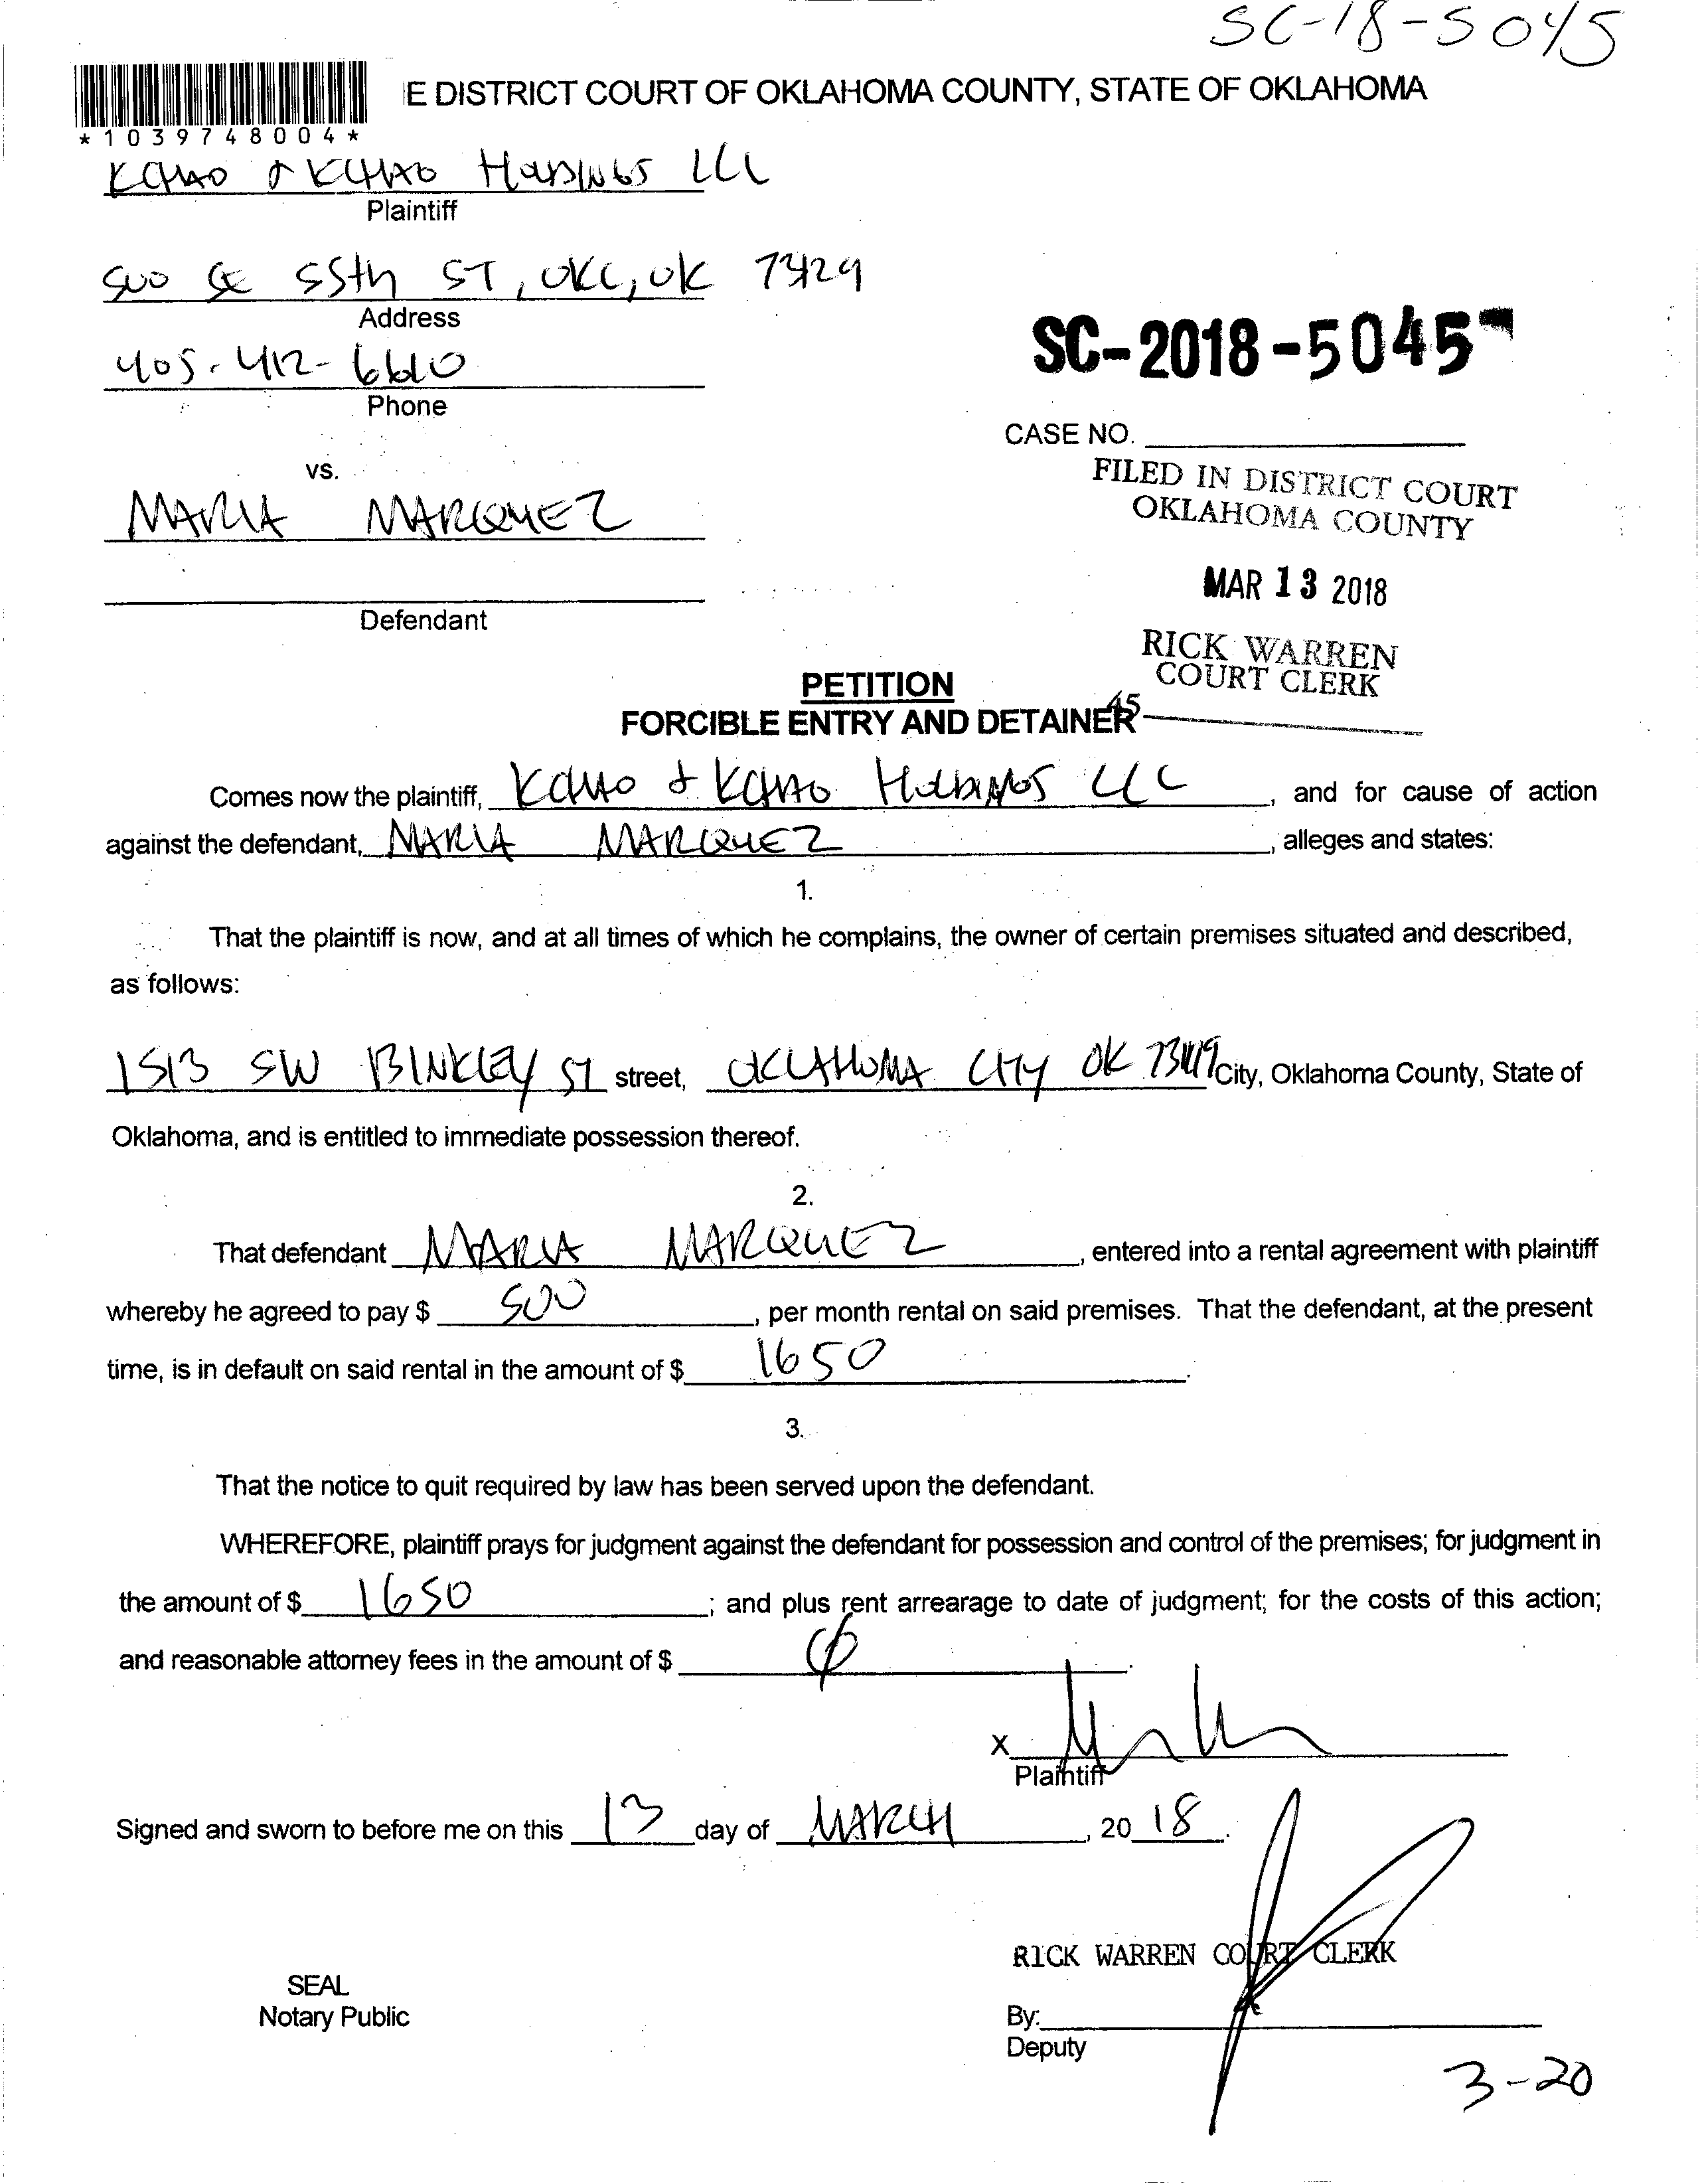 SC-18-5045
E DISTRICT COURT OF OKLAHOMA COUNTY, STATE OF OKLAHOMA
*1039748004*
KCHAO & KCHAO HOLDINGS LLC
Plaintiff
500 SE 55th ST, OKC, OK 73129
Address
405-412-6610
Phone
SC-2018-5045
CASE NO.
vs.
FILED IN DISTRICT COURT
OKLAHOMA COUNTY
MARIA MARQUEZ
MAR 13 2018
Defendant
RICK WARREN
COURT CLERK
PETITION
45
FORCIBLE ENTRY AND DETAINER
Comes now the plaintiff, KCHAO & KCHAO HOLDINGS LLC, and for cause of action
against the defendant, MARIA MARQUEZ, alleges and states:
1.
That the plaintiff is now, and at all times of which he complains, the owner of certain premises situated and described,
as follows:
1513 SW BINKLEY ST street, OKLAHOMA CITY OK 73119 City, Oklahoma County, State of
Oklahoma, and is entitled to immediate possession thereof.
2.
That defendant MARIA MARQUEZ, entered into a rental agreement with plaintiff
whereby he agreed to pay $ 500, per month rental on said premises. That the defendant, at the present
time, is in default on said rental in the amount of $ 1650.
3.
That the notice to quit required by law has been served upon the defendant.
WHEREFORE, plaintiff prays for judgment against the defendant for possession and control of the premises; for judgment in
the amount of $ 1650; and plus rent arrearage to date of judgment; for the costs of this action;
and reasonable attorney fees in the amount of $ ϕ.
X
Plaintiff
Signed and sworn to before me on this 13 day of MARCH, 20 18.
RICK WARREN COURT CLERK
SEAL
Notary Public
By:
Deputy
3-20